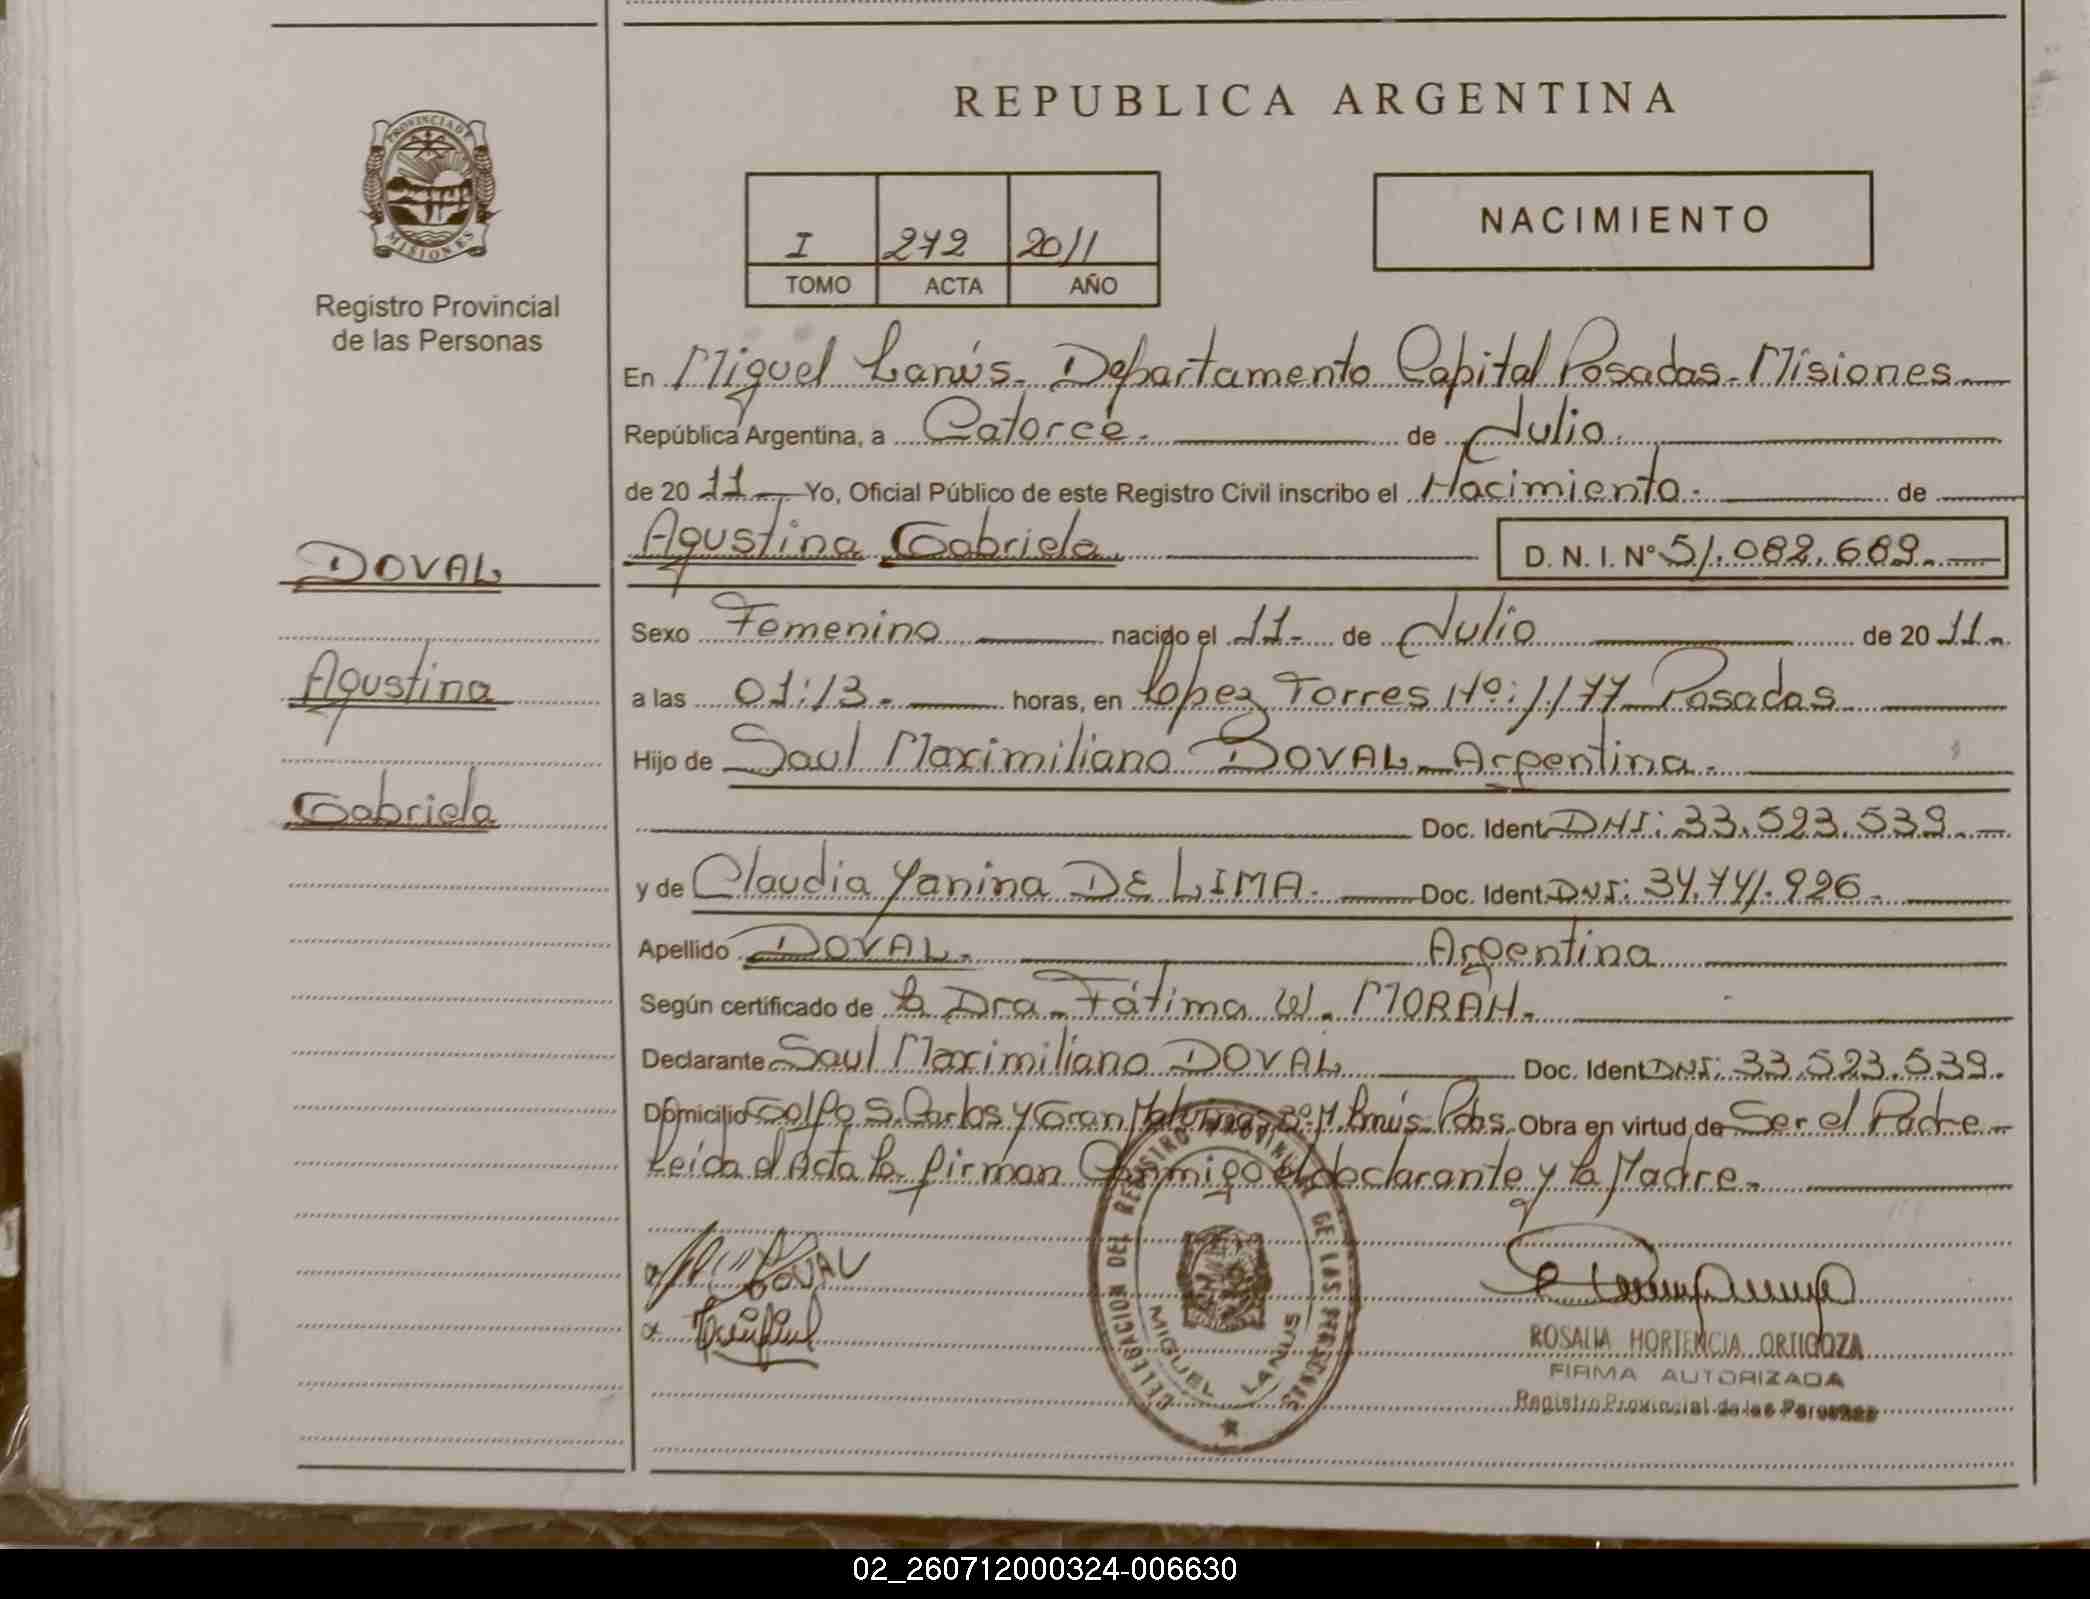 REPUBLICA ARGENTINA
PROVINCIA DE
MISIONES
Registro Provincial
de las Personas
I 272 2011
TOMO ACTA AÑO
NACIMIENTO
En Miguel Lanús - Departamento Capital Posadas - Misiones
República Argentina, a Catorce. de Julio.
de 20 11 Yo, Oficial Público de este Registro Civil inscribo el Nacimiento. de
DOVAL
Agustina Gabriela D. N. I. Nº 51.082.689.
Sexo Femenino nacido el 11 - de Julio de 20 11.
Agustina
a las 01:13 - horas, en Lopez Torres Nº: 1177 Posadas
Hijo de Saul Maximiliano DOVAL - Argentina.
Gabriela
Doc. Ident. DNI: 33.523.539.
y de Claudia Yanina DE LIMA. Doc. Ident. DNI: 34.741.926.
Apellido DOVAL. Argentina
Según certificado de la Dra. Fátima W. MORAN.
Declarante Saul Maximiliano DOVAL Doc. Ident. DNI: 33.523.539.
Domicilio Golfo S. Carlos y Gran Malvinas Lanús - Pdas. Obra en virtud de Ser el Padre
Leída el Acta la firman Conmigo el declarante y la Madre.
DOVAL
DELEGACION DEL REGISTRO PROVINCIAL DE LAS PERSONAS
MIGUEL LANUS
ROSALIA HORTENCIA ORTIGOZA
FIRMA AUTORIZADA
Registro Provincial de las Personas
02_260712000324-006630